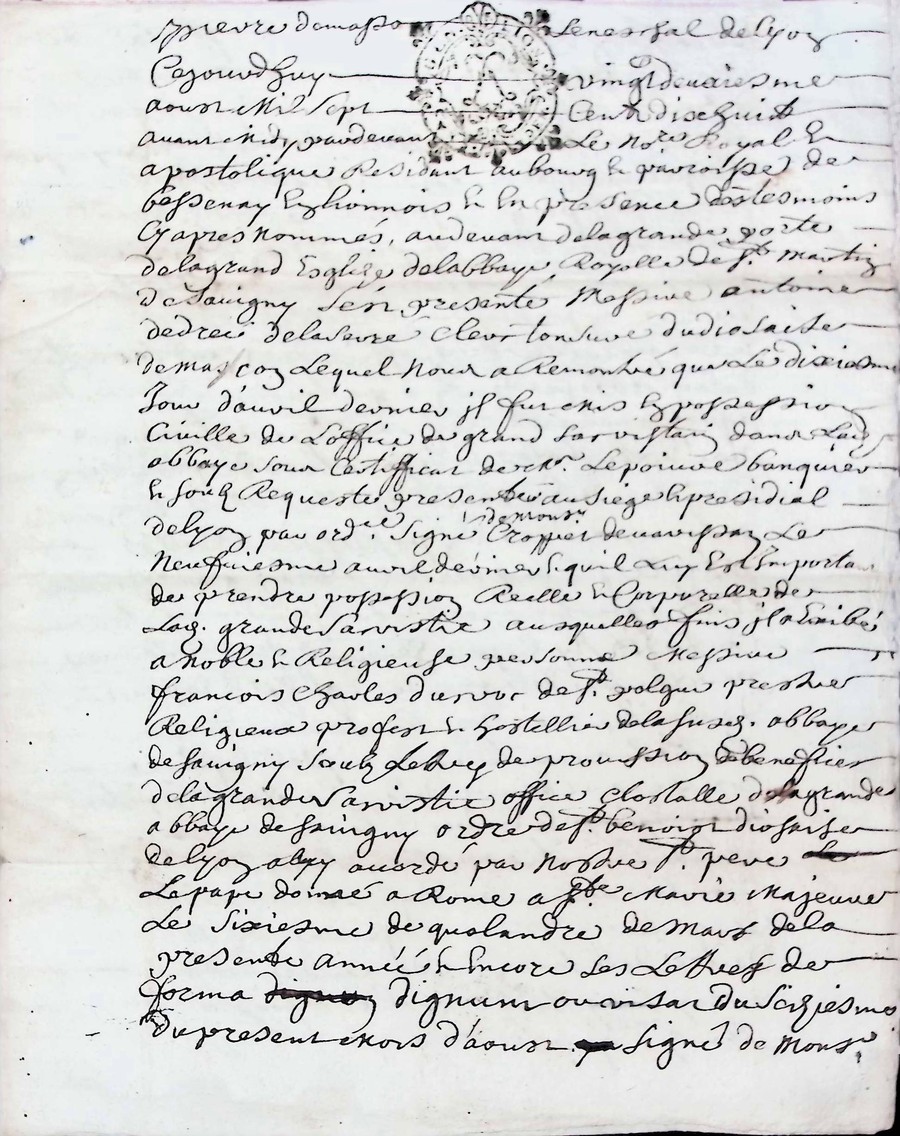 pierre damasso senechal de lyon
Cejourdhuy vingt deuxiesme
aoust Mil Sept Cent dixhuit
avant Midy pardevant Le no.re Royal &
apostolique Residant au bourg & parroisse de
bessenay En lionnois & En presence des tesmoins
Cy apres nommés, au devant de la grande porte
de la grand Esglize de labbaye Royalle de st. martin
de Savigny sest presenté Messire antoine
de dreé de la serrée clerc tonsuré du diosaise
de mascon Lequel Nous a Remontré que Le dixiesme
Jour d'avril dernier jl fut mis En possession
Civille de L'office de grand sacristain dans Lad
abbaye sous Certificat de mr. Lepoivre banquier
& soub Requeste presentée au siege & presidial
de lyon par ord.ce signé demonsr Croppet de varissan Le
Neufviesme avril dernier & quil Luy Est Importan
de prendre possession Reelle & Corporelle de
Lad. grande Sacristie ausquelles fins jl a Exibé
a Noble & Religieuse personne Messire
francois charles du roc de st. polgue prestre
Religieux profest & hostellier de la susd. abbaye
de savigny soub Les de provission de benefice
de la grande Sacristie office Clostralle de la grande
abbaye de savigny ordre de st. benoist diosaise
de lyon a luy acordé par nostre st. pere
Le pape donné a Rome a ste Marie Majeure
Le Sixiesme de qualandre de Mars de la
presente année & Encore Les Lettres de
forma dignum ou visat du Seiziesme
du present Mois d'aoust signé de Monsr